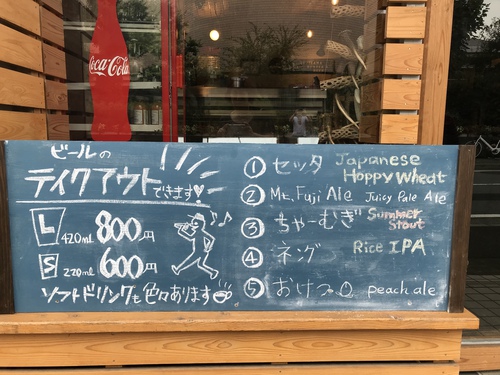 Coca-Cola
ビールの
テイクアウトできます!
L 420ml 800円
S 220ml 600円
ソフトドリンクも色々あります
① セッタ Japanese Hoppy Wheat
② Mt. Fuji Ale Juicy Pale Ale
③ ちゃーむぎ Summer Stout
④ ネグ Rice IPA
⑤ peach ale